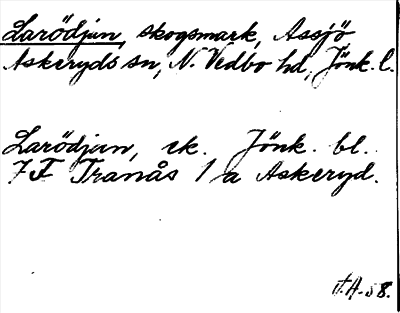 Larödjan, skogsmark, Assjö
Askeryds sn, N. Vedbo hd, Jönk. l.
Larödjan, ek. Jönk. bl.
7F Tranås 1 a Askeryd.
J.A. 58.